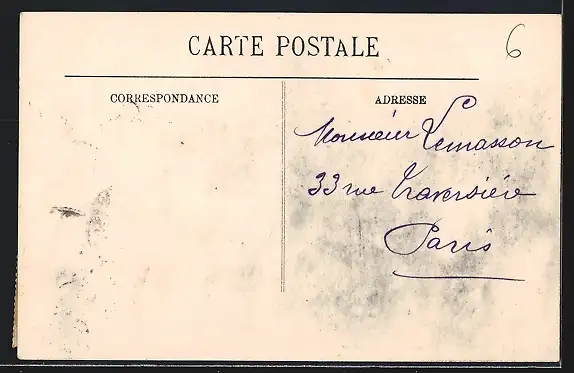 CARTE POSTALE
6
CORRESPONDANCE
ADRESSE
Monsieur Lemasson
33 rue Traversière
Paris